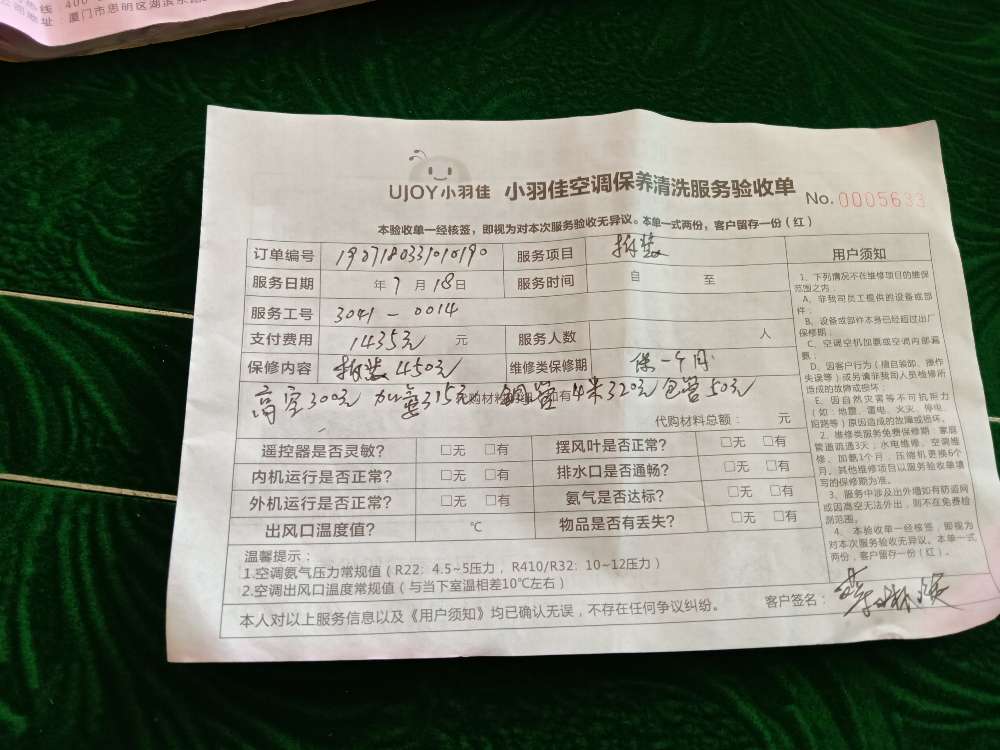 热线 400
地址：厦门市思明区湖滨东路
UJOY小羽佳 小羽佳空调保养清洗服务验收单 No.0005633
本验收单一经核签，即视为对本次服务验收无异议。本单一式两份，客户留存一份（红）
订单编号 服务项目 拆装 用户须知
服务日期 年 7 月 18 日 服务时间 自 至
服务工号 3041-0014
支付费用 1435元 元 服务人数 人
保修内容 拆装450元 维修类保修期 保一个月
高空300元 加氨315元 代购材料 铜管4米320元 包管50元
代购材料总额： 元
遥控器是否灵敏？ □无 □有 摆风叶是否正常？ □无 □有
内机运行是否正常？ □无 □有 排水口是否通畅？ □无 □有
外机运行是否正常？ □无 □有 氨气是否达标？ □无 □有
出风口温度值？ ℃ 物品是否有丢失？ □无 □有
1、下列情况不在维修项目的维保
范围之内：
A、非我司员工提供的设备或部
件；
B、设备或部件本身已经超过出厂
保修期；
C、空调空机加氨或空调内部漏
氨；
D、因客户行为（擅自装卸、操作
失误等）或另请非我司人员检修所
造成的故障或损坏；
E、因自然灾害等不可抗拒力
（如：地震、雷电、火灾、停电、
阻路等）原因造成的故障或损坏。
2、维修类服务免费保修期：家庭
管道疏通3天；水电维修、空调维
修、加氨1个月，压缩机更换6个
月。其他维修项目以服务验收单填
写的保修期为准。
3、服务中涉及出外墙如有防盗网
或因高空无法外出，则不在免费检
测范围。
4、本验收单一经核签，即视为
对本次服务验收无异议。本单一式
两份，客户留存一份（红）。
温馨提示：
1.空调氨气压力常规值（R22：4.5~5压力， R410/R32：10~12压力）
2.空调出风口温度常规值（与当下室温相差10℃左右）
本人对以上服务信息以及《用户须知》均已确认无误，不存在任何争议纠纷。 客户签名：